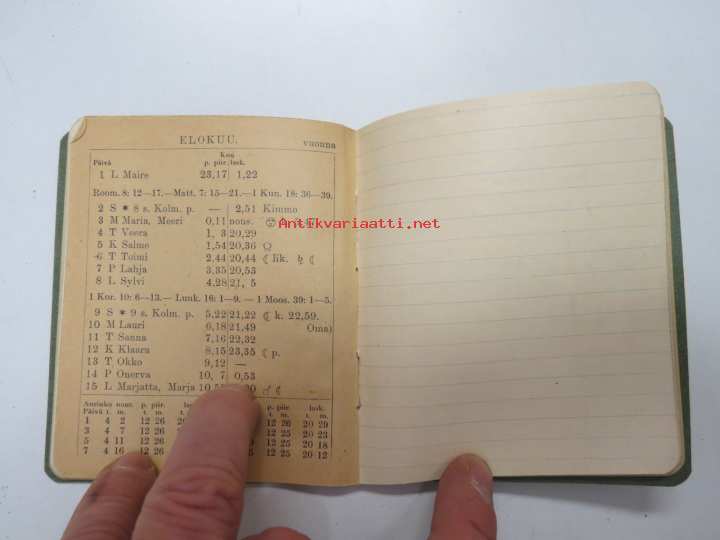 ELOKUU. vuonna
Kuu
Päivä p. piir. lask.
1 L Maire 23,17 1,22
Room. 8: 12—17.— Matt. 7: 15—21.—1 Kun. 18: 36—39.
2 S * 8 s. Kolm. p. — 2,51 Kimmo
3 M Maria, Meeri 0,11 nous.
4 T Veera 1, 3 20,29
5 K Salme 1,54 20,36
6 T Toimi 2,44 20,44 ☾ lik. ☾
7 P Lahja 3,35 20,53
8 L Sylvi 4,28 21, 5
1 Kor. 10: 6—13.— Luuk. 16: 1—9. — 1 Moos. 39: 1—5.
9 S * 9 s. Kolm. p. 5,22 21,22 ☾ k. 22,59.
10 M Lauri 6,18 21,49 Oma)
11 T Sanna 7,16 22,32
12 K Klaara 8,15 23,35 ☾ p.
13 T Okko 9,12 —
14 P Onerva 10, 7 0,53
15 L Marjatta, Marja ♂ ☾
Aurinko nous. p. piir. p. piir. lask.
Päivä t. m. t. m. t. m. t. m.
1 4 2 12 26 12 26 20 29
3 4 7 12 26 12 26 20 23
5 4 11 12 26 12 25 20 18
7 4 16 12 26 12 25 20 12
Antikvariaatti.net